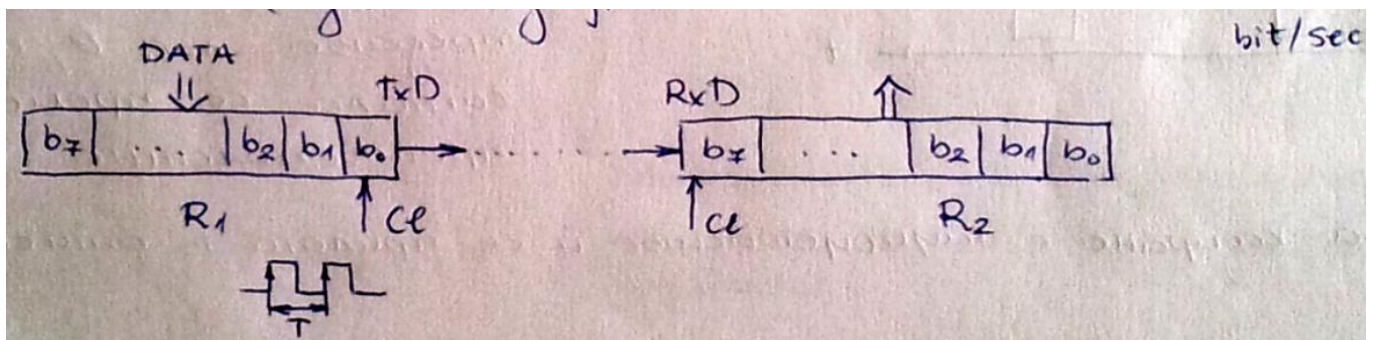 bit/sec
DATA
TxD RxD
b7 ... b2 b1 b0 ......... b7 ... b2 b1 b0
R1 Cl Cl R2
T